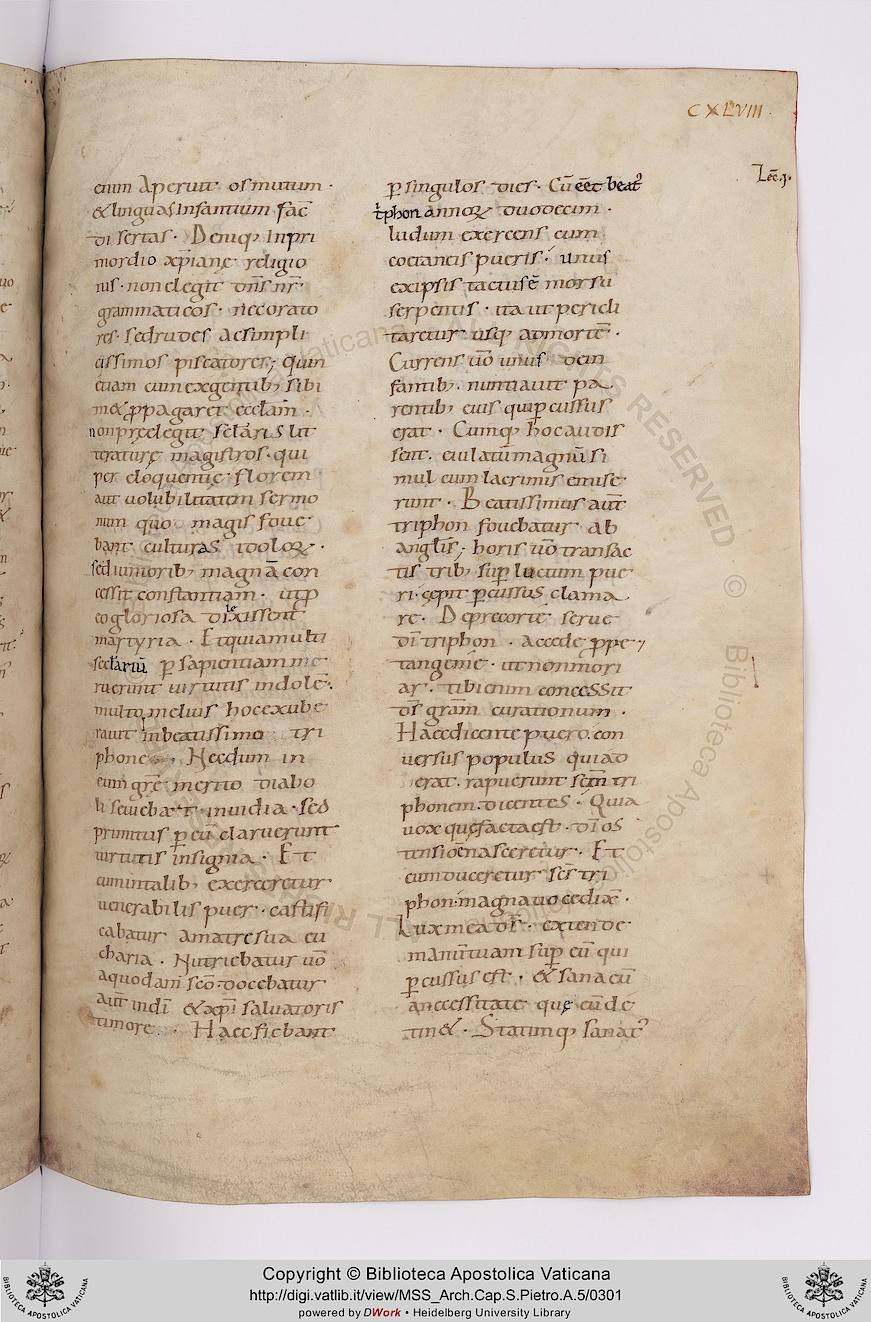 CXLVIII.
Lec̄.j.
enim Aperuit os mutum ·
& linguas Infantium fac̄
disertas · Deniq; Inpri
mordio xp̄iane religio
nis · non elegit dn̄s nr̄
grammaticos · nec orato
res · sed rudes ac simpli
cissimos piscatores; quin
etiam cum ex gentib; sibi
m& p̄pagaret eccl̄am ·
non preelegit sel̄aris lit
terature magistros · qui
per eloquentie florem
aut volubilitatem sermo
num quo magis foue
bant culturas idoloꝝ ·
sed iunniorib; magnā con
cessit constantiam · ut p
eo gloriosa dilexissent
martyria · Et quia multi
secl̄ariū p̄ sapientiam me
ruerunt uirtutis indolē ·
multo melius hoc exube
rauit in beatissimo tri
phone, Necdum in
eum gr̄e mestio diabo
li seuebat inuidia · sed
primitus p̄ eū claruerunt
uirtutis insignia · Et
cum in talib; exerceretur
uenerabilis puer · castifi
cabatur a matre sua eu
charia · Nutriebatur uō
a quodam scō · docebatur
aut̄ in dī & xp̄i saluatoris
timore · Haec fiebant
p̄ singulos dies · Cū eēt beat᾽
t̄phon annoꝝ duodecim ·
ludum exercens cum
coetaneis pueris · unus
ex ipsis tactus ē morsu
serpentis · ita ut pericli
taretur usq; ad mortē ·
Currens uō unus de in
fantib; · nuntiauit pa
rentib; eius qui p̄cussus
erat · Cumq; hoc audis
sent · eiulatū magnū si
mul cum lacrimis emise
runt · Beatissimus aut̄
triphon fouebatur ab
angl̄is; horis uō transac
tis trib; sup̄ luctum pue
ri · cepit p̄cussus clama
re · Deprecor te serue
dī triphon · accede p̄pe
tange me · ut non mori
ar · tibi enim concessit
dō̄s gram̄ curationum ·
Haec dicente puero · con
uersus populus qui ad
erat · rapuerunt scm̄ tri
phonem · dicentes · Quia
uox que facta est · dī os
tensio ē nasceretur · Et
cum duceretur scs̄ tri
phon · magna uoce dix̄ ·
Lux mea dō̄s · extende
manū tuam sup̄ eū qui
p̄cussus est · & sana eū
a necessitate que eū de
tin& · Statimq; sanat᾽
Copyright © Biblioteca Apostolica Vaticana
http://digi.vatlib.it/view/MSS_Arch.Cap.S.Pietro.A.5/0301
powered by DWork • Heidelberg University Library